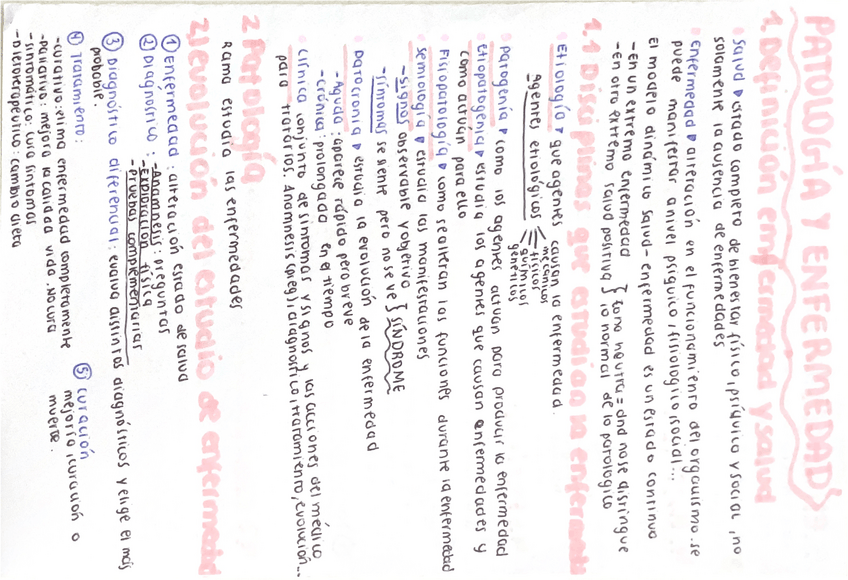 PATOLOGÍA Y ENFERMEDAD
1. Definición enfermedad y salud
Salud → estado completo de bienestar físico, psíquico y social, no
solamente la ausencia de enfermedades
Enfermedad → alteración en el funcionamiento del organismo. se
puede manifestar a nivel psíquico, fisiológico, social...
El modelo dinámico salud-enfermedad es un estado continuo
-en un extremo enfermedad
-en otro extremo salud positiva } zona neutra = dnd no se distingue
lo normal de lo patológico
1.1 Disciplinas que estudian la enfermedad
Etiología → que agentes causan la enfermedad.
agentes etiológicos
mecánicos
físicos
químicos
genéticos
Patogenia → como los agentes actuan para producir la enfermedad
Etiopatogenia → estudia los agentes que causan enfermedades y
como actúan para ello
Fisiopatología → como se alteran las funciones durante la enfermedad
Semiología → estudia las manifestaciones
-Signos observable y objetivo } SÍNDROME
-síntomas se siente pero no se ve
Patocronia → estudia la evolución de la enfermedad
-Aguda: aparece rápido pero breve
-crónica: prolongada en el tiempo
Clínica conjunto de síntomas y signos y las acciones del médico
para tratarlos. Anamnesis (preg), diagnóstico, tratamiento, evolución...
2 Patología
Rama estudia las enfermedades
2.1 evolución del estudio de enfermedad
① Enfermedad: alteración estado de salud
② Diagnóstico: -Anamnesis: preguntas
-Exploración física
-Pruebas complementarias
③ Diagnóstico diferencial: evalua distintos diagnósticos y elige el más
probable.
④ Tratamiento:
-curativo: elima enfermedad completamente
-paliativo: mejora la calidad vida. NO cura
-sintomático: cura síntomas
-Dietoterapeútico: cambio dieta
⑤ curación
mejoría, curación o
muerte.